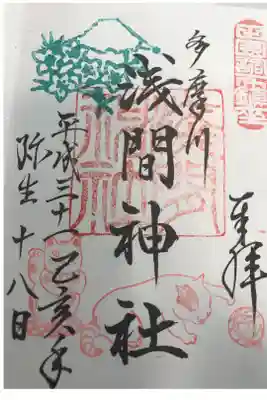 奉拝
多摩川
浅間神社
平成三十一己亥年
弥生十八日